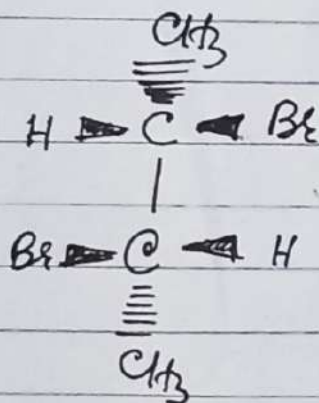 CH3
H C Br
C
Br H
CH3